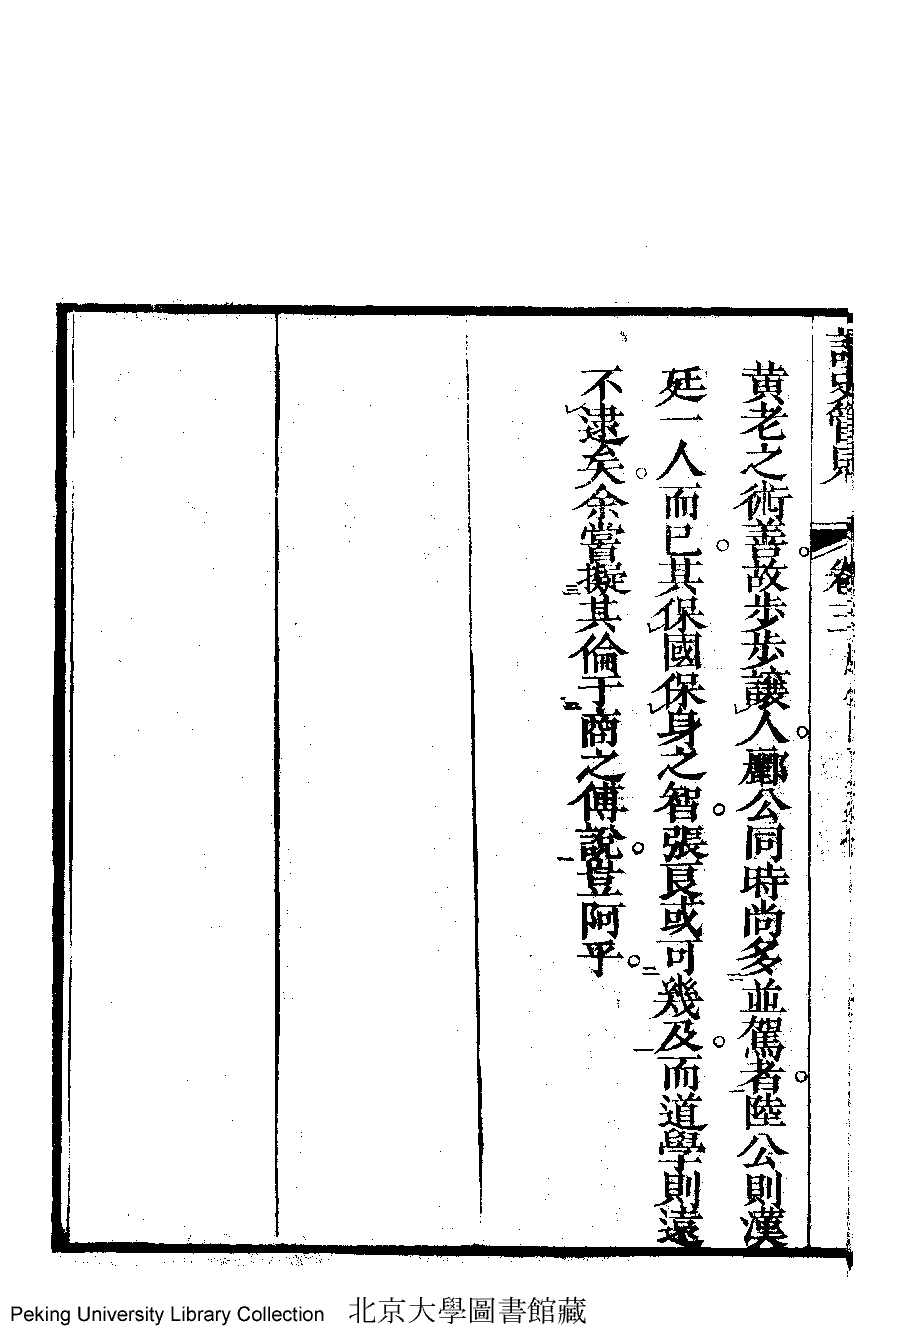 卷三
黃老之術善故步步讓人。酈公同時尚多並駕者。陸公則漢
廷一人而已。其保國保身之智。張良或可幾及。而道學則遠
不逮矣。余嘗擬其倫于商之傅說。豈阿乎。
Peking University Library Collection 北京大學圖書館藏